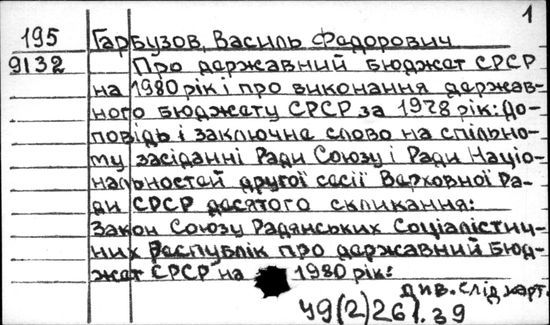 1
195 Гарбузов, Василь Федорович
9132 Про державний бюджет СРСР
на 1980 рік і про виконання держав-
ного бюджету СРСР за 1978 рік: До-
повідь і заключне слово на спільно-
му засіданні Ради Союзу і Ради Націо-
нальностей другої сесії Верховної Ра-
ди СРСР десятого скликання:
Закон Союзу Радянських Соціалістич-
них Республік про державний бюд-
жет СРСР на 1980 рік:
див. слід карт.
У9(2)261.39